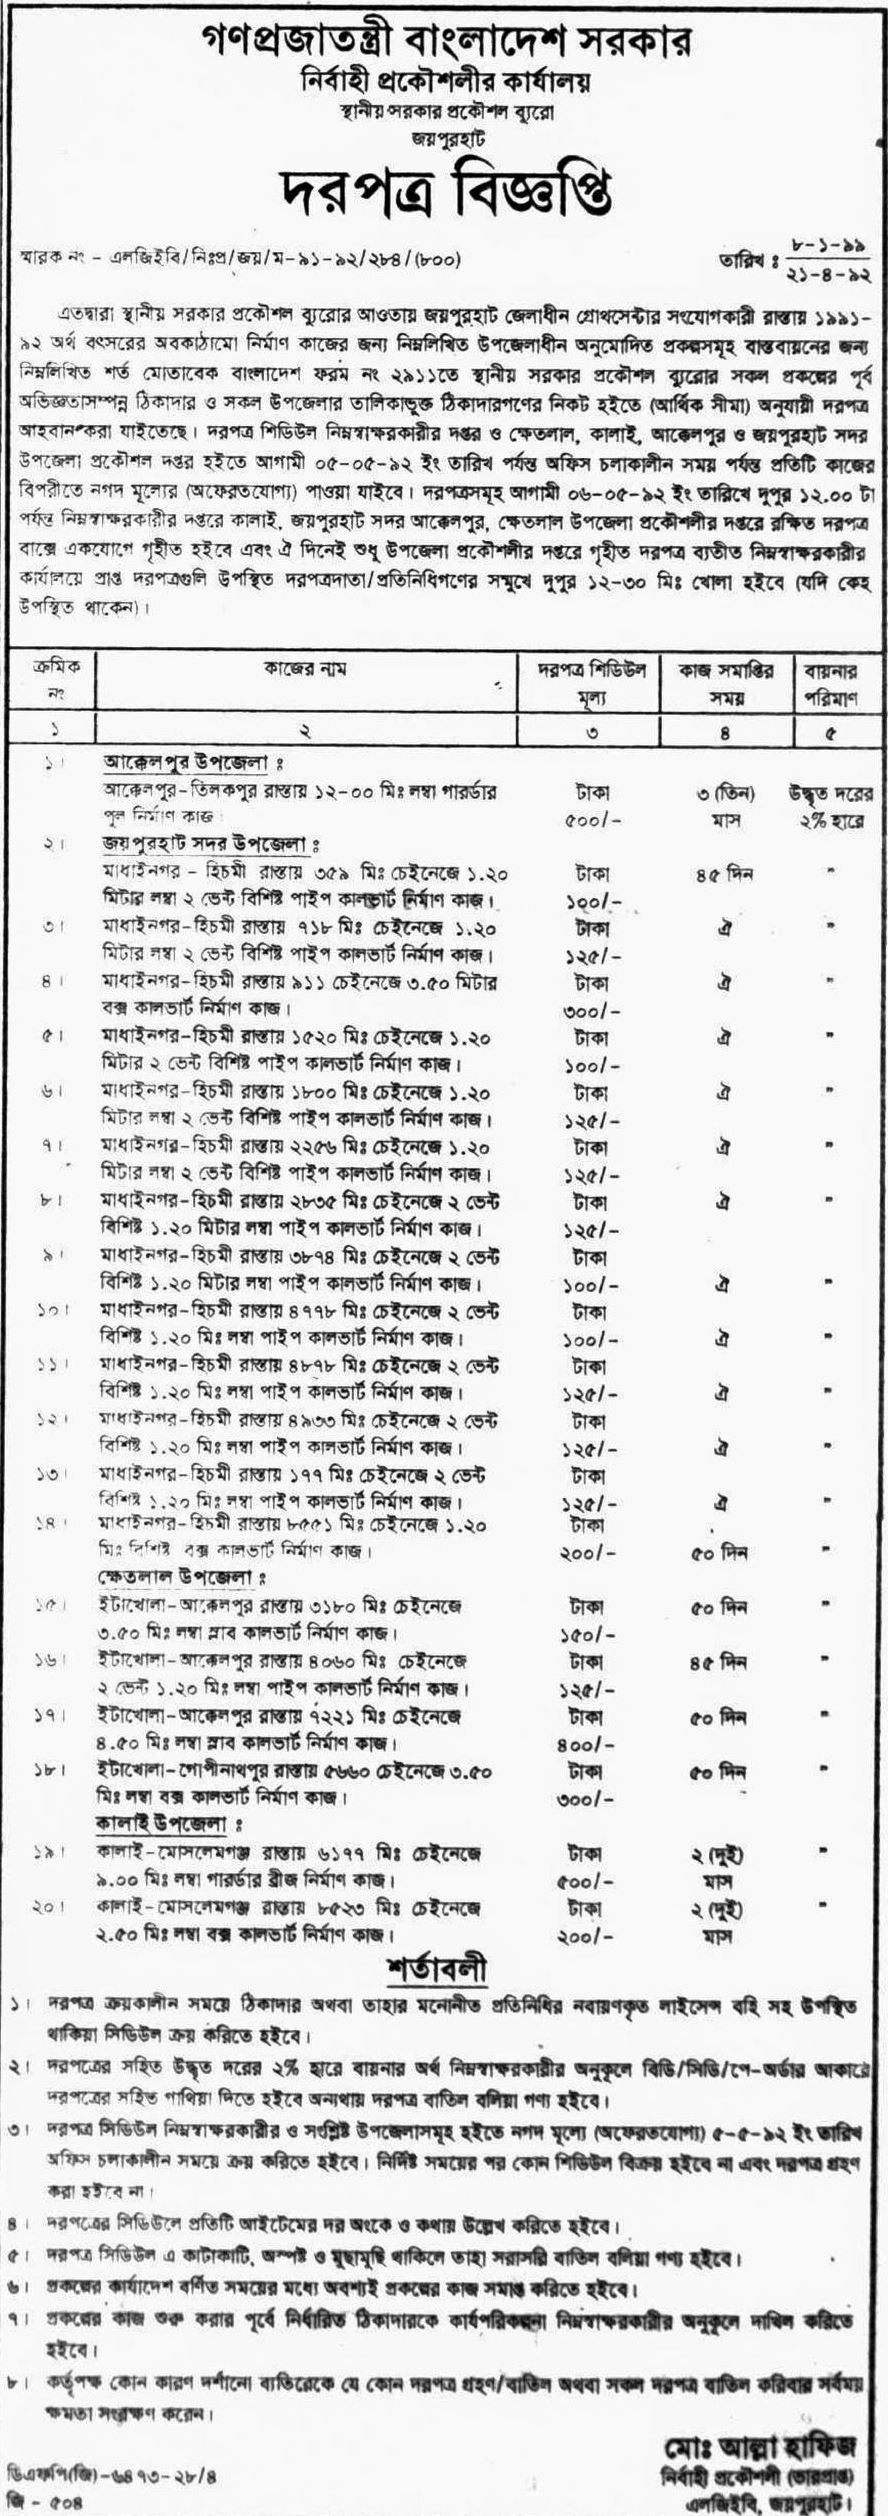 গণপ্রজাতন্ত্রী বাংলাদেশ সরকার
নির্বাহী প্রকৌশলীর কার্যালয়
স্থানীয় সরকার প্রকৌশল ব্যুরো
জয়পুরহাট
দরপত্র বিজ্ঞপ্তি
স্মারক নং - এলজিইবি/নিঃপ্র/জয়/ম-৯১-৯২/২৮৪/(৮০০) তারিখ ঃ ৮-১-৯৯
২১-৪-৯২
এতদ্বারা স্থানীয় সরকার প্রকৌশল ব্যুরোর আওতায় জয়পুরহাট জেলাধীন গ্রোথসেন্টার সংযোগকারী রাস্তায় ১৯৯১-
৯২ অর্থ বৎসরের অবকাঠামো নির্মাণ কাজের জন্য নিম্নলিখিত উপজেলাধীন অনুমোদিত প্রকল্পসমূহ বাস্তবায়নের জন্য
নিম্নলিখিত শর্ত মোতাবেক বাংলাদেশ ফরম নং ২৯১১তে স্থানীয় সরকার প্রকৌশল ব্যুরোর সকল প্রকল্পের পূর্ব
অভিজ্ঞতাসম্পন্ন ঠিকাদার ও সকল উপজেলার তালিকাভুক্ত ঠিকাদারগণের নিকট হইতে (আর্থিক সীমা) অনুযায়ী দরপত্র
আহবান করা যাইতেছে। দরপত্র শিডিউল নিম্নস্বাক্ষরকারীর দপ্তর ও ক্ষেতলাল, কালাই, আক্কেলপুর ও জয়পুরহাট সদর
উপজেলা প্রকৌশল দপ্তর হইতে আগামী ০৫-০৫-৯২ ইং তারিখ পর্যন্ত অফিস চলাকালীন সময় পর্যন্ত প্রতিটি কাজের
বিপরীতে নগদ মূল্যের (অফেরতযোগ্য) পাওয়া যাইবে। দরপত্রসমূহ আগামী ০৬-০৫-৯২ ইং তারিখে দুপুর ১২.০০ টা
পর্যন্ত নিম্নস্বাক্ষরকারীর দপ্তরে কালাই, জয়পুরহাট সদর আক্কেলপুর, ক্ষেতলাল উপজেলা প্রকৌশলীর দপ্তরে রক্ষিত দরপত্র
বাক্সে একযোগে গৃহীত হইবে এবং ঐ দিনেই শুধু উপজেলা প্রকৌশলীর দপ্তরে গৃহীত দরপত্র ব্যতীত নিম্নস্বাক্ষরকারীর
কার্যালয়ে প্রাপ্ত দরপত্রগুলি উপস্থিত দরপত্রদাতা/প্রতিনিধিগণের সম্মুখে দুপুর ১২-৩০ মিঃ খোলা হইবে (যদি কেহ
উপস্থিত থাকেন)।
ক্রমিক কাজের নাম দরপত্র শিডিউল কাজ সমাপ্তির বায়নার
নং মূল্য সময় পরিমাণ
১ ২ ৩ ৪ ৫
১। আক্কেলপুর উপজেলা ঃ
আক্কেলপুর-তিলকপুর রাস্তায় ১২-০০ মিঃ লম্বা গারর্ডার টাকা ৩ (তিন) উদ্ধৃত দরের
পুল নির্মাণ কাজ। ৫০০/- মাস ২% হারে
২। জয়পুরহাট সদর উপজেলা ঃ
মাধাইনগর - হিচমী রাস্তায় ৩৫৯ মিঃ চেইনেজে ১.২০ টাকা ৪৫ দিন "
মিটার লম্বা ২ ভেন্ট বিশিষ্ট পাইপ কালভার্ট নির্মাণ কাজ। ১০০/-
৩। মাধাইনগর-হিচমী রাস্তায় ৭১৮ মিঃ চেইনেজে ১.২০ টাকা ঐ "
মিটার লম্বা ২ ভেন্ট বিশিষ্ট পাইপ কালভার্ট নির্মাণ কাজ। ১২৫/-
৪। মাধাইনগর-হিচমী রাস্তায় ৯১১ চেইনেজে ৩.৫০ মিটার টাকা ঐ "
বক্স কালভার্ট নির্মাণ কাজ। ৩০০/-
৫। মাধাইনগর-হিচমী রাস্তায় ১৫২০ মিঃ চেইনেজে ১.২০ টাকা ঐ "
মিটার ২ ভেন্ট বিশিষ্ট পাইপ কালভার্ট নির্মাণ কাজ। ১০০/-
৬। মাধাইনগর-হিচমী রাস্তায় ১৮০০ মিঃ চেইনেজে ১.২০ টাকা ঐ "
মিটার লম্বা ২ ভেন্ট বিশিষ্ট পাইপ কালভার্ট নির্মাণ কাজ। ১২৫/-
৭। মাধাইনগর-হিচমী রাস্তায় ২২৫৬ মিঃ চেইনেজে ১.২০ টাকা ঐ "
মিটার লম্বা ২ ভেন্ট বিশিষ্ট পাইপ কালভার্ট নির্মাণ কাজ। ১২৫/-
৮। মাধাইনগর-হিচমী রাস্তায় ২৮৩৫ মিঃ চেইনেজে ২ ভেন্ট টাকা ঐ "
বিশিষ্ট ১.২০ মিটার লম্বা পাইপ কালভার্ট নির্মাণ কাজ। ১২৫/-
৯। মাধাইনগর-হিচমী রাস্তায় ৩৮৭৪ মিঃ চেইনেজে ২ ভেন্ট টাকা
বিশিষ্ট ১.২০ মিটার লম্বা পাইপ কালভার্ট নির্মাণ কাজ। ১০০/- ঐ "
১০। মাধাইনগর-হিচমী রাস্তায় ৪৭৭৮ মিঃ চেইনেজে ২ ভেন্ট টাকা
বিশিষ্ট ১.২০ মিঃ লম্বা পাইপ কালভার্ট নির্মাণ কাজ। ১০০/- ঐ "
১১। মাধাইনগর-হিচমী রাস্তায় ৪৮৭৮ মিঃ চেইনেজে ২ ভেন্ট টাকা
বিশিষ্ট ১.২০ মিঃ লম্বা পাইপ কালভার্ট নির্মাণ কাজ। ১২৫/- ঐ "
১২। মাধাইনগর-হিচমী রাস্তায় ৪৯৩৩ মিঃ চেইনেজে ২ ভেন্ট টাকা
বিশিষ্ট ১.২০ মিঃ লম্বা পাইপ কালভার্ট নির্মাণ কাজ। ১২৫/- ঐ "
১৩। মাধাইনগর-হিচমী রাস্তায় ১৭৭ মিঃ চেইনেজে ২ ভেন্ট টাকা
বিশিষ্ট ১.২০ মিঃ লম্বা পাইপ কালভার্ট নির্মাণ কাজ। ১২৫/- ঐ "
১৪। মাধাইনগর-হিচমী রাস্তায় ৮৫৫১ মিঃ চেইনেজে ১.২০ টাকা
মিঃ বিশিষ্ট বক্স কালভার্ট নির্মাণ কাজ। ২০০/- ৫০ দিন "
ক্ষেতলাল উপজেলা ঃ
১৫। ইটাখোলা-আক্কেলপুর রাস্তায় ৩১৮০ মিঃ চেইনেজে টাকা ৫০ দিন "
৩.৫০ মিঃ লম্বা স্লাব কালভার্ট নির্মাণ কাজ। ১৫০/-
১৬। ইটাখোলা-আক্কেলপুর রাস্তায় ৪০৬০ মিঃ চেইনেজে টাকা ৪৫ দিন "
২ ভেন্ট ১.২০ মিঃ লম্বা পাইপ কালভার্ট নির্মাণ কাজ। ১২৫/-
১৭। ইটাখোলা-আক্কেলপুর রাস্তায় ৭২২১ মিঃ চেইনেজে টাকা ৫০ দিন "
৪.৫০ মিঃ লম্বা স্লাব কালভার্ট নির্মাণ কাজ। ৪০০/-
১৮। ইটাখোলা-গোপীনাথপুর রাস্তায় ৫৬৬০ চেইনেজে ৩.৫০ টাকা ৫০ দিন "
মিঃ লম্বা বক্স কালভার্ট নির্মাণ কাজ। ৩০০/-
কালাই উপজেলা ঃ
১৯। কালাই-মোসলেমগঞ্জ রাস্তায় ৬১৭৭ মিঃ চেইনেজে টাকা ২ (দুই) "
৯.০০ মিঃ লম্বা গারর্ডার ব্রীজ নির্মাণ কাজ। ৫০০/- মাস
২০। কালাই-মোসলেমগঞ্জ রাস্তায় ৮৫২৩ মিঃ চেইনেজে টাকা ২ (দুই) "
২.৫০ মিঃ লম্বা বক্স কালভার্ট নির্মাণ কাজ। ২০০/- মাস
শর্তাবলী
১। দরপত্র ক্রয়কালীন সময়ে ঠিকাদার অথবা তাহার মনোনীত প্রতিনিধির নবায়ণকৃত লাইসেন্স বহি সহ উপস্থিত
থাকিয়া সিডিউল ক্রয় করিতে হইবে।
২। দরপত্রের সহিত উদ্ধৃত দরের ২% হারে বায়নার অর্থ নিম্নস্বাক্ষরকারীর অনুকূলে বিডি/সিডি/পে-অর্ডার আকারে
দরপত্রের সহিত গাথিয়া দিতে হইবে অন্যথায় দরপত্র বাতিল বলিয়া গণ্য হইবে।
৩। দরপত্র সিডিউল নিম্নস্বাক্ষরকারীর ও সংশ্লিষ্ট উপজেলাসমূহ হইতে নগদ মূল্যে (অফেরতযোগ্য) ৫-৫-৯২ ইং তারিখ
অফিস চলাকালীন সময়ে ক্রয় করিতে হইবে। নির্দিষ্ট সময়ের পর কোন শিডিউল বিক্রয় হইবে না এবং দরপত্র গ্রহণ
করা হইবে না।
৪। দরপত্রের সিডিউলে প্রতিটি আইটেমের দর অংকে ও কথায় উল্লেখ করিতে হইবে।
৫। দরপত্র সিডিউল এ কাটাকাটি, অস্পষ্ট ও মুছামুছি থাকিলে তাহা সরাসরি বাতিল বলিয়া গণ্য হইবে।
৬। প্রকল্পের কার্যাদেশ বর্ণিত সময়ের মধ্যে অবশ্যই প্রকল্পের কাজ সমাপ্ত করিতে হইবে।
৭। প্রকল্পের কাজ শুরু করার পূর্বে নির্ধারিত ঠিকাদারকে কার্যপরিকল্পনা নিম্নস্বাক্ষরকারীর অনুকূলে দাখিল করিতে
হইবে।
৮। কর্তৃপক্ষ কোন কারণ দর্শানো ব্যতিরেকে যে কোন দরপত্র গ্রহণ/বাতিল অথবা সকল দরপত্র বাতিল করিবার সর্বময়
ক্ষমতা সংরক্ষণ করেন।
মোঃ আল্লা হাফিজ
ডিএফপি(জি)-৬৪৭৩-২৮/৪ নির্বাহী প্রকৌশলী (ভারপ্রাপ্ত)
জি - ৫০৪ এলজিইবি, জয়পুরহাট।